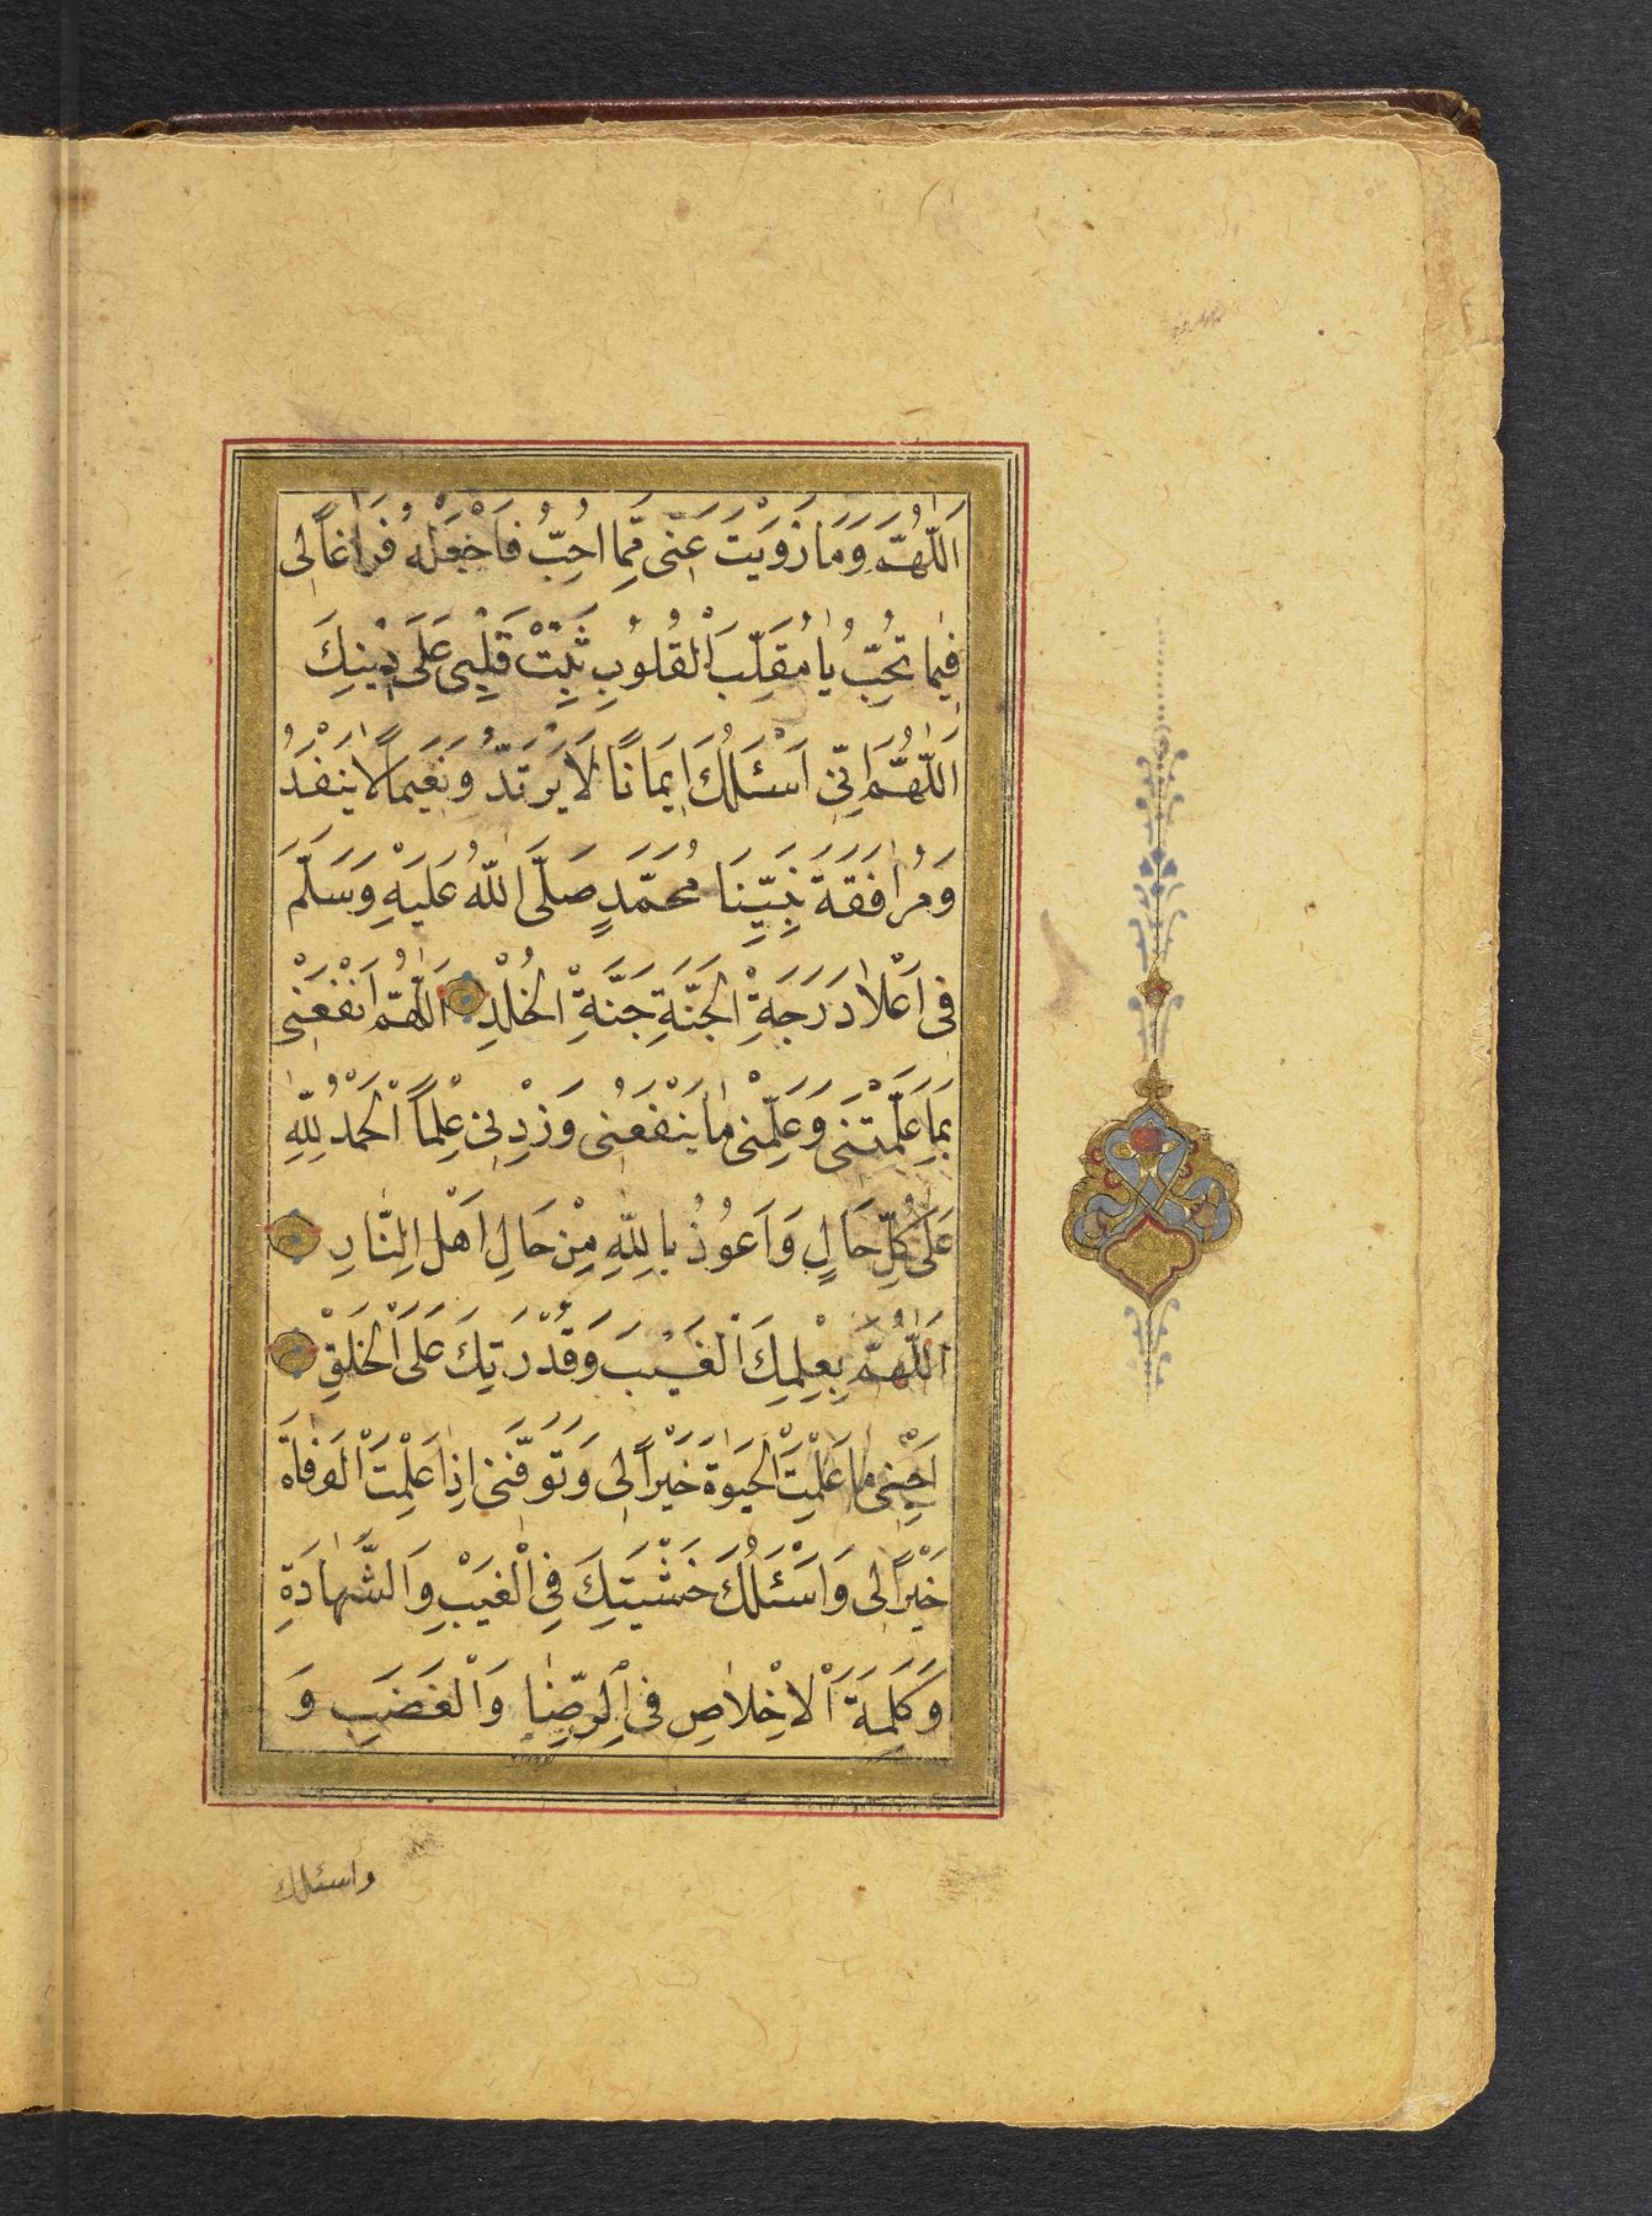 اَللّٰهُمَّ وَمَا زَوَيْتَ عَنّٖى مِمَّا اُحِبُّ فَاجْعَلْهُ فَرَاغًا لِى
فِيمَا تُحِبُّ يَا مُقَلِّبَ الْقُلُوبِ ثَبِّتْ قَلْبِى عَلَى دِيْنِكَ
اَللّٰهُمَّ اِنِّى اَسْئَلُكَ اِيمَانًا لَا يَرْتَدُّ وَنَعِيمًا لَا يَنْفَدُ
وَمُرَافَقَةَ نَبِيِّنَا مُحَمَّدٍ صَلَّى اللّٰهُ عَلَيْهِ وَسَلَّمَ
فِى اَعْلَا دَرَجَةِ الْجَنَّةِ جَنَّةِ الْخُلْدِ اَللّٰهُمَّ انْفَعْنِى
بِمَا عَلَّمْتَنِى وَعَلِّمْنِى مَا يَنْفَعُنِى وَزِدْنِى عِلْمًا اَلْحَمْدُ لِلّٰهِ
عَلَى كُلِّ حَالٍ وَاَعُوذُ بِاللّٰهِ مِنْ حَالِ اَهْلِ النَّارِ
اَللّٰهُمَّ بِعِلْمِكَ الْغَيْبَ وَقُدْرَتِكَ عَلَى الْخَلْقِ
اَحْيِنِى مَا عَلِمْتَ الْحَيٰوةَ خَيْرًا لِى وَتَوَفَّنِى اِذَا عَلِمْتَ الْوَفَاةَ
خَيْرًا لِى وَاَسْئَلُكَ خَشْيَتَكَ فِى الْغَيْبِ وَالشَّهَادَةِ
وَكَلِمَةَ الْاِخْلَاصِ فِى الرِّضَا وَالْغَضَبِ وَ
واسئلك